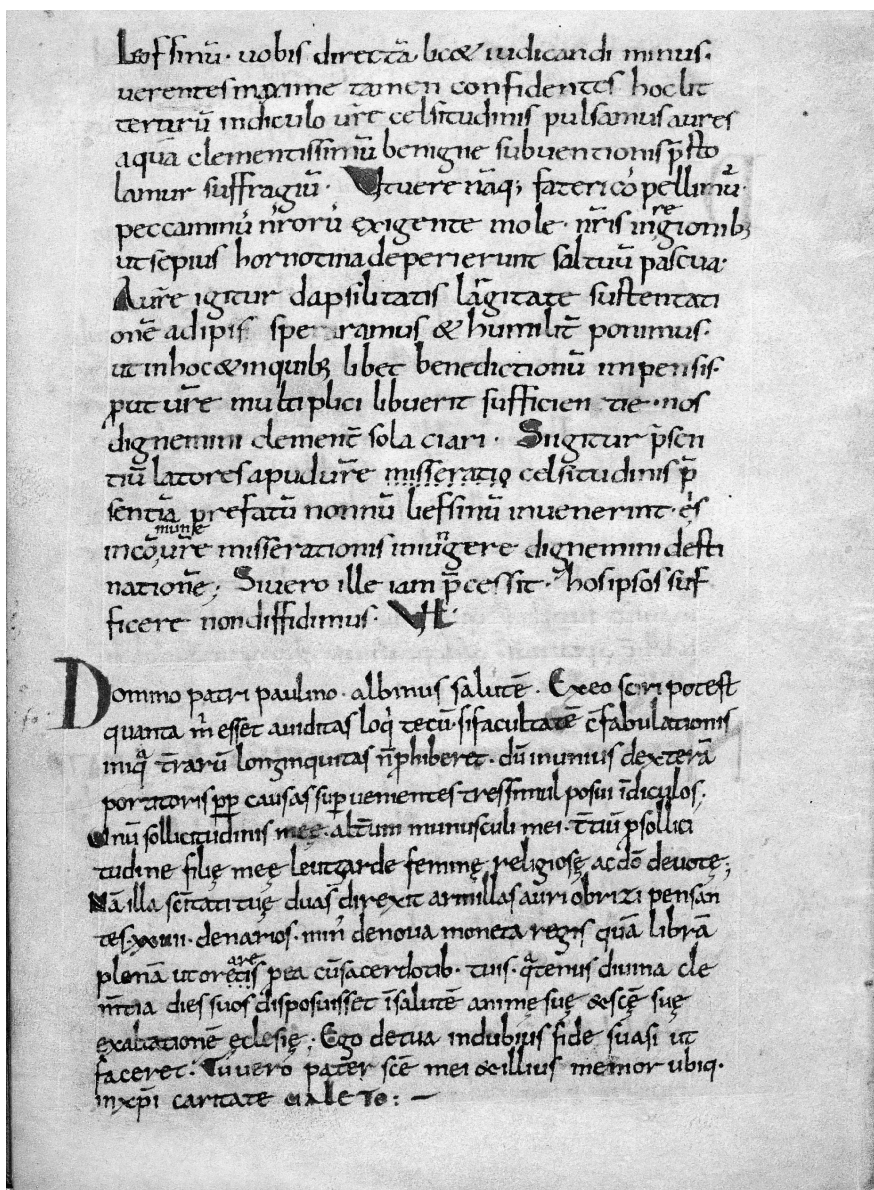 Leofsinū· uobis directā lic& iudicandi minus·
uerentes maxime tamen confidentes hoc lit
terarū indiculo ur̄e celsitudinis pulsamus aures
a qua clementissimū benigne subuentionis p̄sto
lamur suffragiū· Ut uere nāq; fateri cō pellimū·
peccaminū nr̄orū exigente mole· nr̄is in regionib;
ut sepius hornotina deperierunt saltuū pascua·
A ur̄e igitur dapsilitatis largitate sustentati
onē adipis speramus & humilit̄ ponimus·
ut in hoc & in quib; libet benedictionū impensis·
put ur̄e multiplici libuerit sufficien tie· nos
dignemini clement̄ sola ciari· Si igitur p̄sen
tiū latores apud ur̄e misseratio celsitudinis p̄
sentiā prefatū nonnū liefsinū inuenerint· ēs
in cōmune ur̄e misserationis iniungere dignemini desti
natione; Si uero ille iam p̄cessit· hos ipsos suf
ficere non diffidimus· Ual
Domino patri paulino· albinus salutē· Ex eo sciri potest
quanta m̄ esset auiditas loqi tecū· si facultatē c̄fabulationis
iniqa tr̄arū longinquitas n̄ phiberet· dū in unius dexterā
portitoris pp causas sup uenientes tres simul posui īdiculos·
Unū sollicitudinis meę· alt̄um munusculi mei· t̄tiū p sollici
tudine filię meę leutgarde feminę religiosę ac dō deuotę;
Nā illa sc̄itati tuę duas direxit armillas auri obrizi pensan
tes· xxiiii· denarios· min̄ de noua moneta regis quā librā
plenā ut oretis p ea cū sacerdotib· tuis· qatenus diuina cle
m̄tia dies suos disposuisset ī salutē animę suę & scę suę
exaltationē ęclesię· Ego de tua indubius fide suasi ut
faceret· Tu uero pater scē mei & illius memor ubiq·
in xp̄i caritate uale to: —